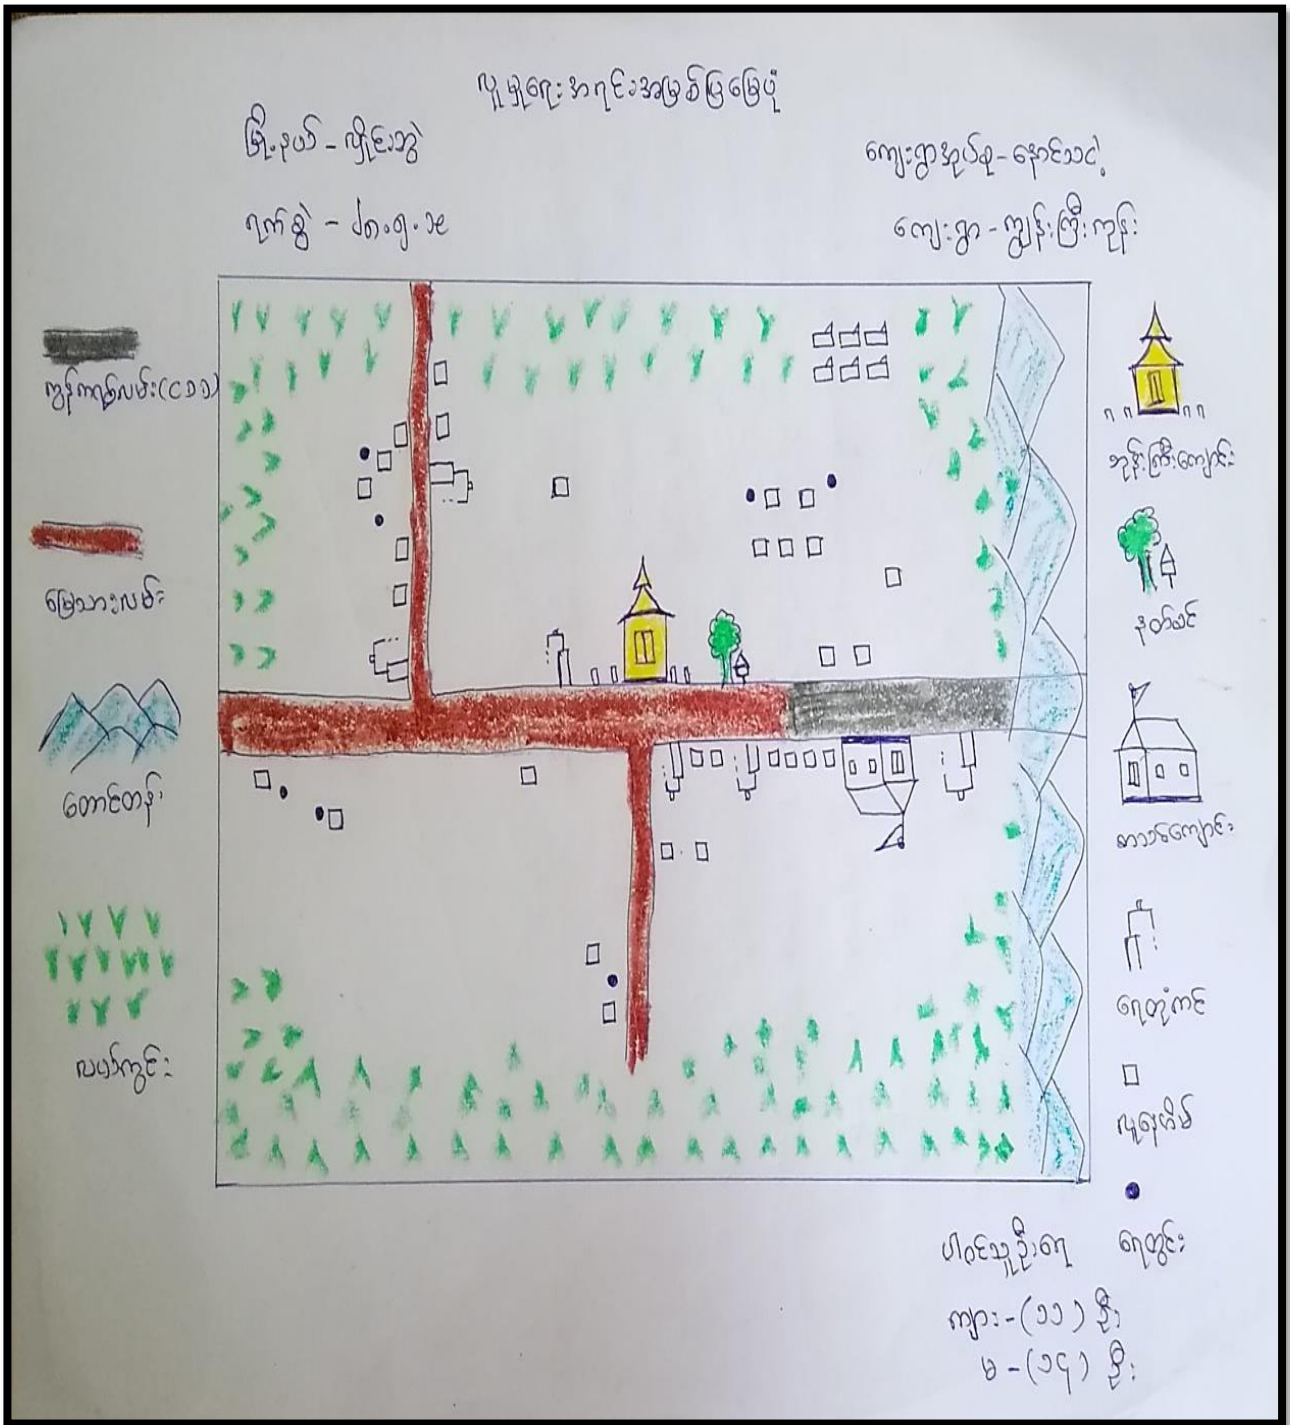 လူမှုရေးအရင်းအမြစ်ပြမြေပုံ
မြို့နယ် - လှိုင်းဘွဲ
ကျေးရွာအုပ်စု - နောင်သငဲ့
ရက်စွဲ -
ကျေးရွာ - ကျွန်းကြီးကုန်း
ကွန်ကရစ်လမ်း
မြေသားလမ်း
တောင်တန်း
လယ်ကွင်း
ဘုန်းကြီးကျောင်း
နတ်စင်
စာသင်ကျောင်း
ရေတုံကင်
လူနေအိမ်
ရေတွင်း
ပါဝင်သူဦးရေ
ကျား - (၁၁) ဦး
မ - (၁၄) ဦး